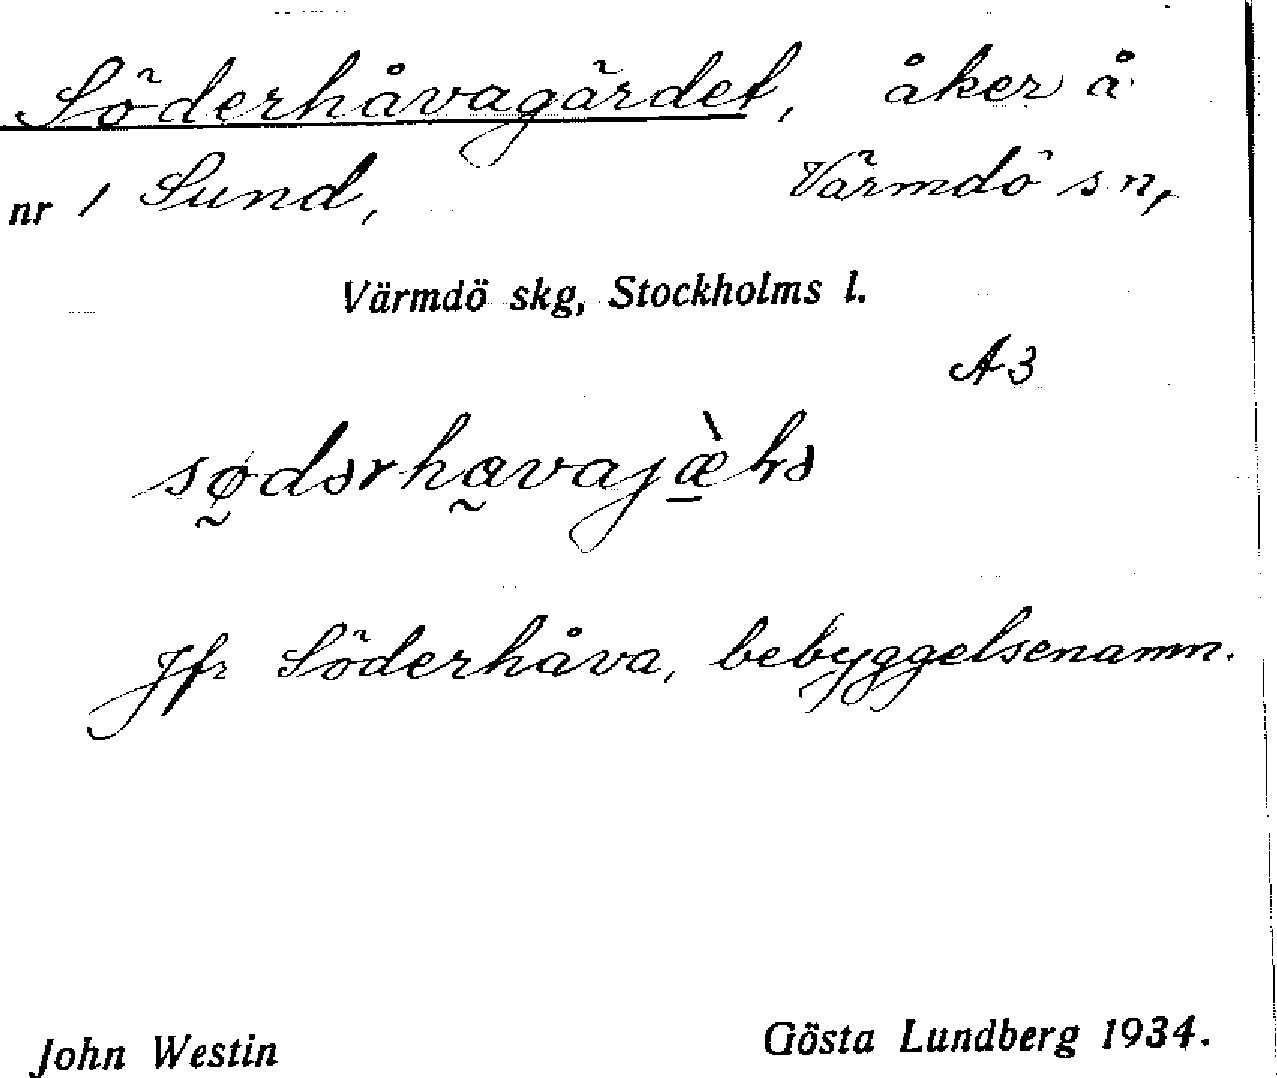 Söderhåvagärdet, åker å
nr 1 Sund, Värmdö sn,
Värmdö skg, Stockholms l.
A3
Jfr Söderhåva, bebyggelsenamn.
John Westin Gösta Lundberg 1934.